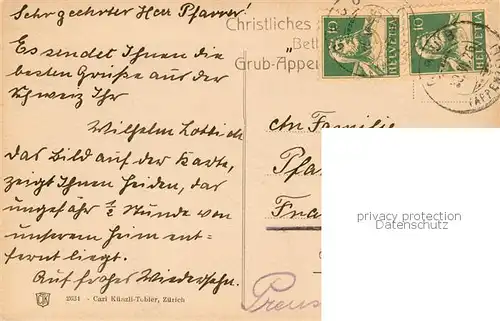 Sehr geehrter Herr Pfarrer!
Es sendet Ihnen die
besten Grüße aus der
Schweiz Ihr
Wilhelm
Das Bild auf der Karte,
zeigt Ihnen Heiden, das
ungefähr ½ Stunde von
unserem Heim ent-
fernt liegt.
Auf frohes Wiedersehn.
2651 - Carl Künzli-Tobler, Zürich
Christliches
Bett
Grub-Appen
10
HELVETIA
10
HELVETIA
An Familie
Pfa
Fra
Preus
privacy protection
Datenschutz